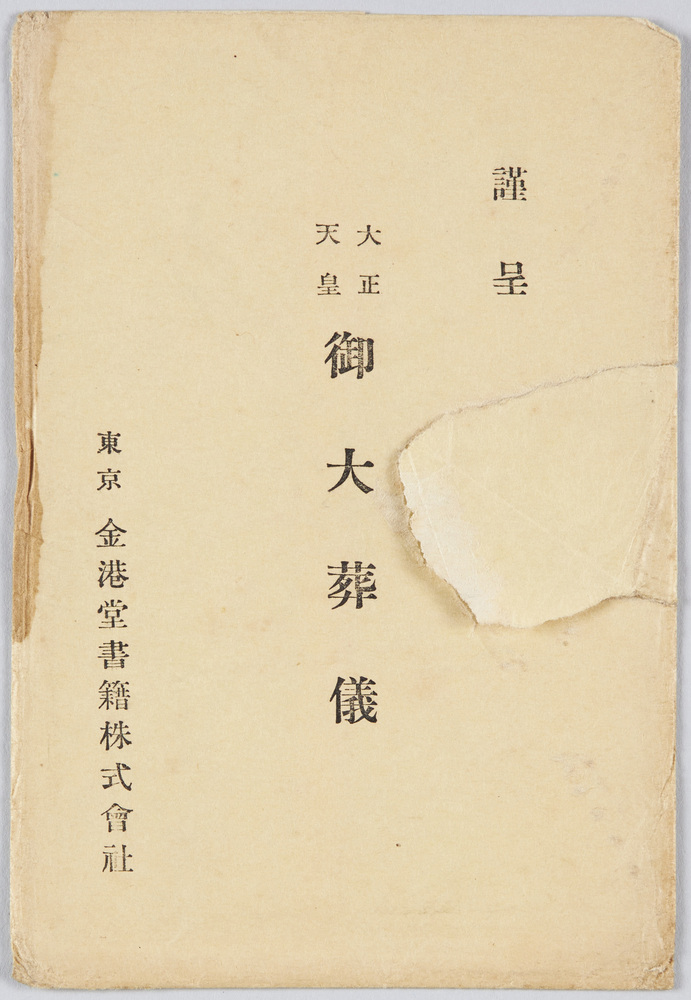 謹呈
大正
天皇
御大葬儀
東京 金港堂書籍株式會社